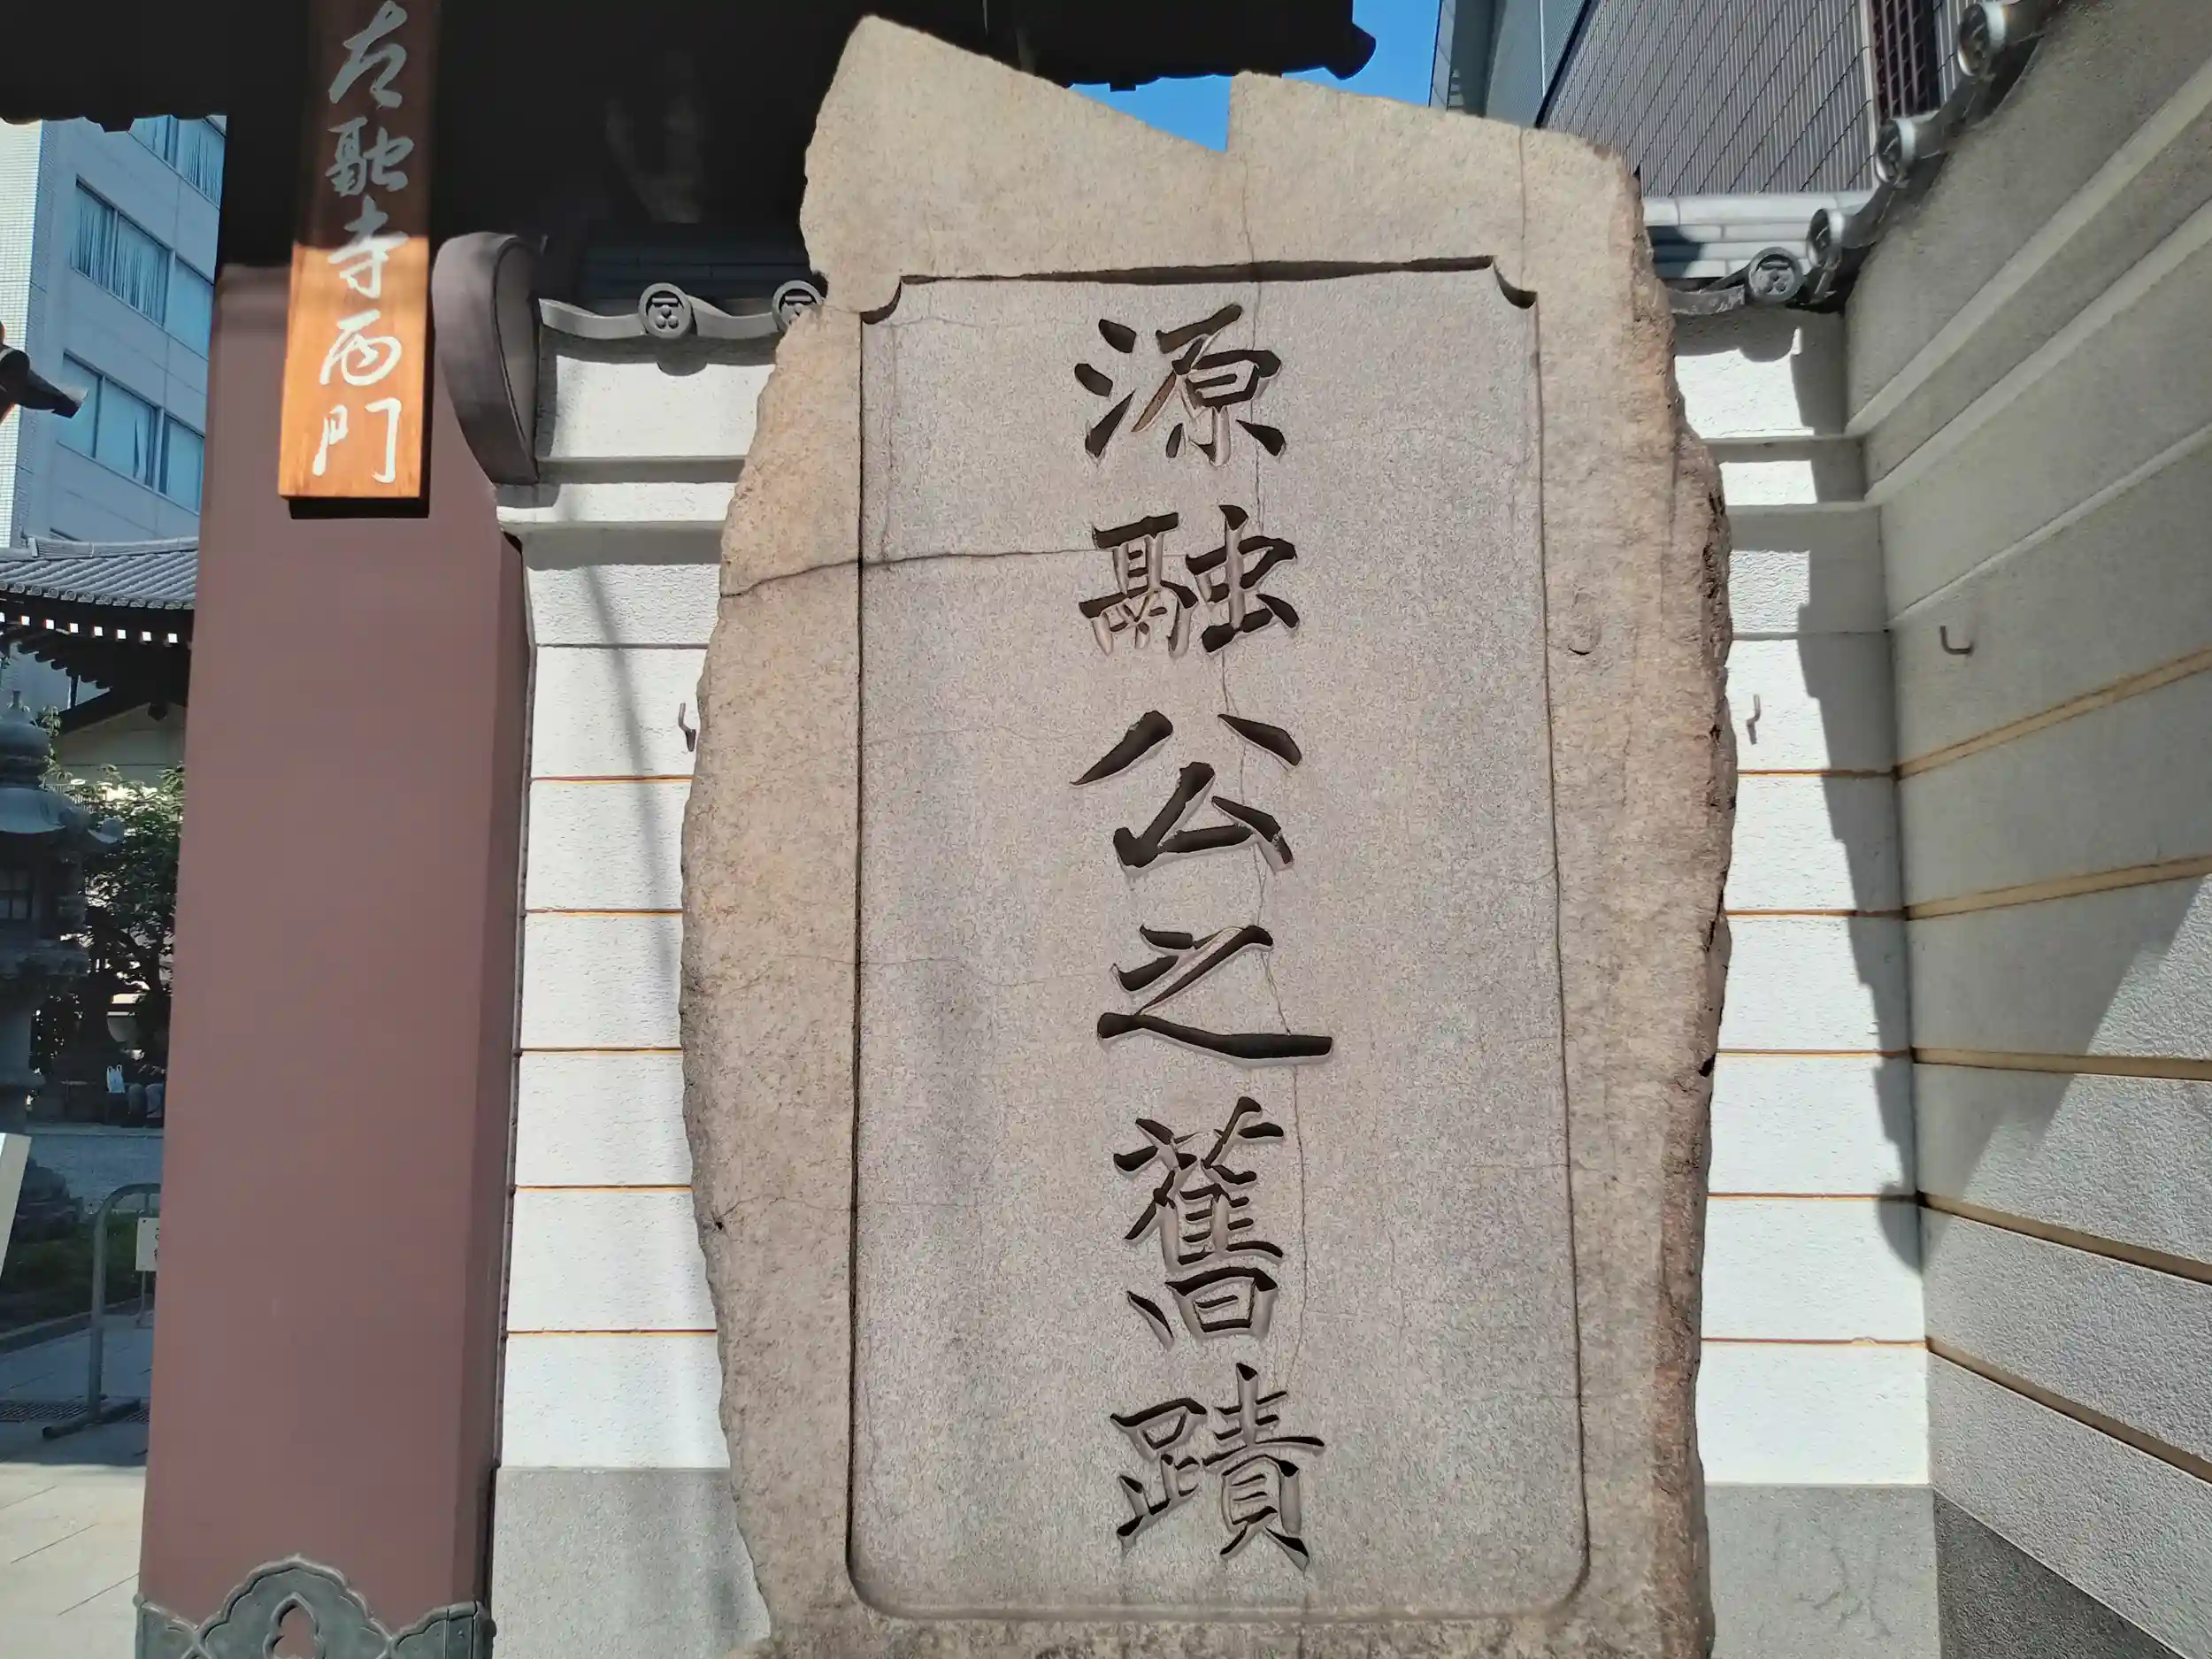 源融公之舊蹟
太融寺西門